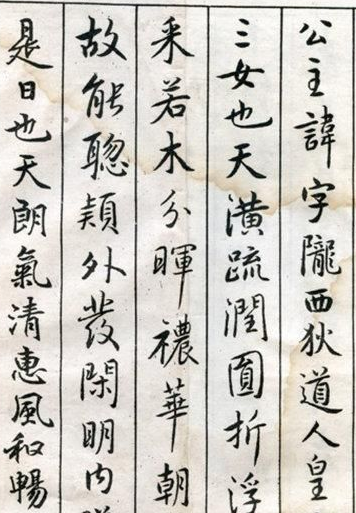 公主諱字隴西狄道人皇
三女也天潢疏潤圓折浮
采若木分暉禯華朝
故能聰頴外發閑明内
是日也天朗氣清惠風和暢